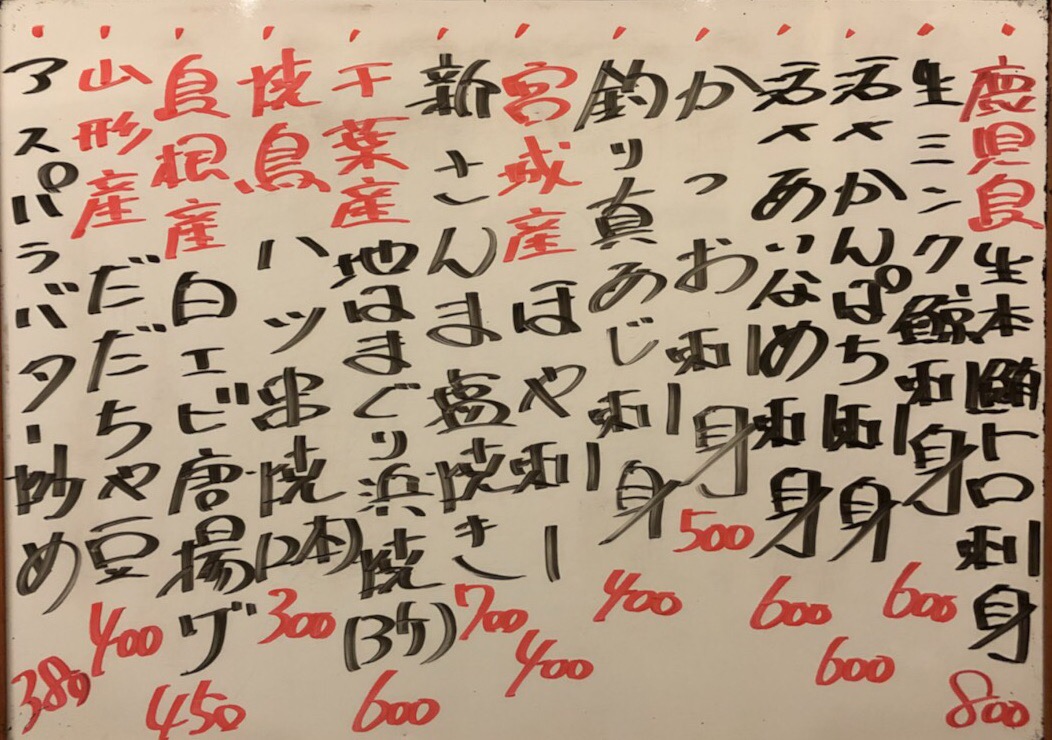 鹿児島生本鮪トロ刺身 800
生ミンク鯨刺身 600
活〆かんぱち刺身 600
活〆あいなめ刺身 600
かつお刺身 500
釣り真あじ刺身 400
宮城産ほや刺し 400
新さんま塩焼き 700
千葉産地はまぐり浜焼(3ケ) 600
焼鳥ハツ串焼(2本) 300
島根産白エビ唐揚げ 450
山形産だだちゃ豆 400
アスパラバター炒め 380